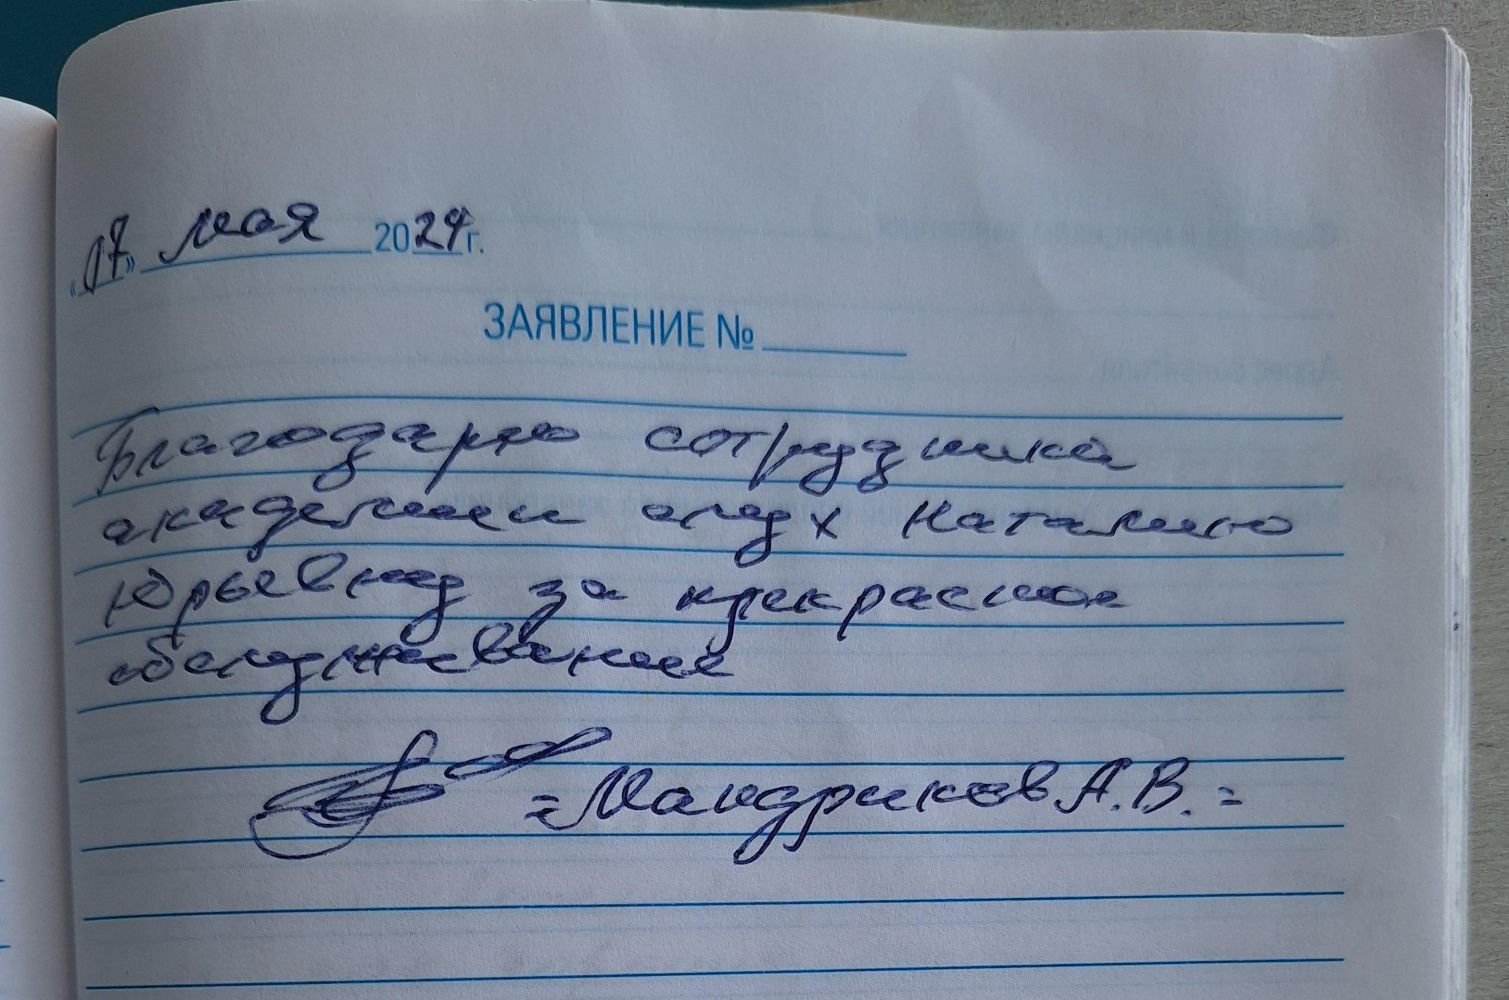 «17» мая 2024 г.
ЗАЯВЛЕНИЕ №
Благодарю сотрудника
академии слух Наталию
Юрьевну за прекрасное
обслуживание
=Мандриков А.В.=